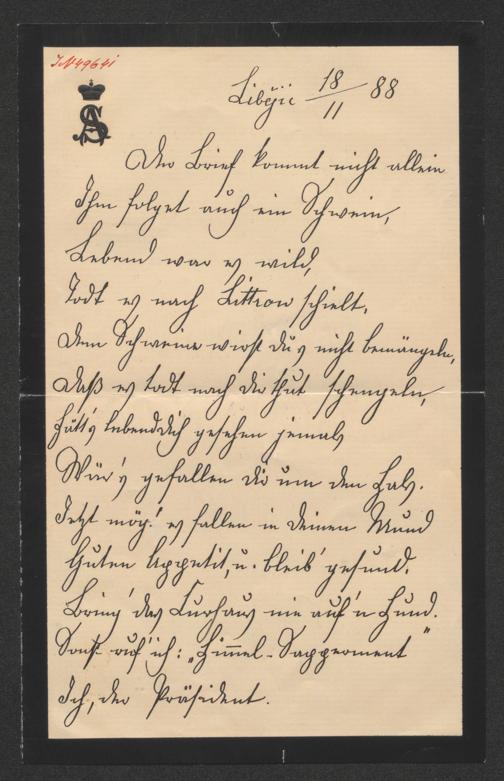 IN 49641
AS
Libějic 18/11 88
Der Brief kommt nicht allein
Ihm folget auch ein Schwein,
Lebend war es wild,
Todt es nach Littrow schielt.
Dem Schweine wirst du's nicht bemängeln,
Daß es todt nach dir thut schengeln,
Hätt's lebend dich gesehen jemals
Wär's gefallen dir um den Hals.
Jetzt mög' es fallen in deinen Mund
Guten Appetit, u. bleib' gesund.
Bring' das Curhaus nie auf'n Hund.
Sonst ruf' ich: „Himmel-Sapperment"
Ich, der Präsident.